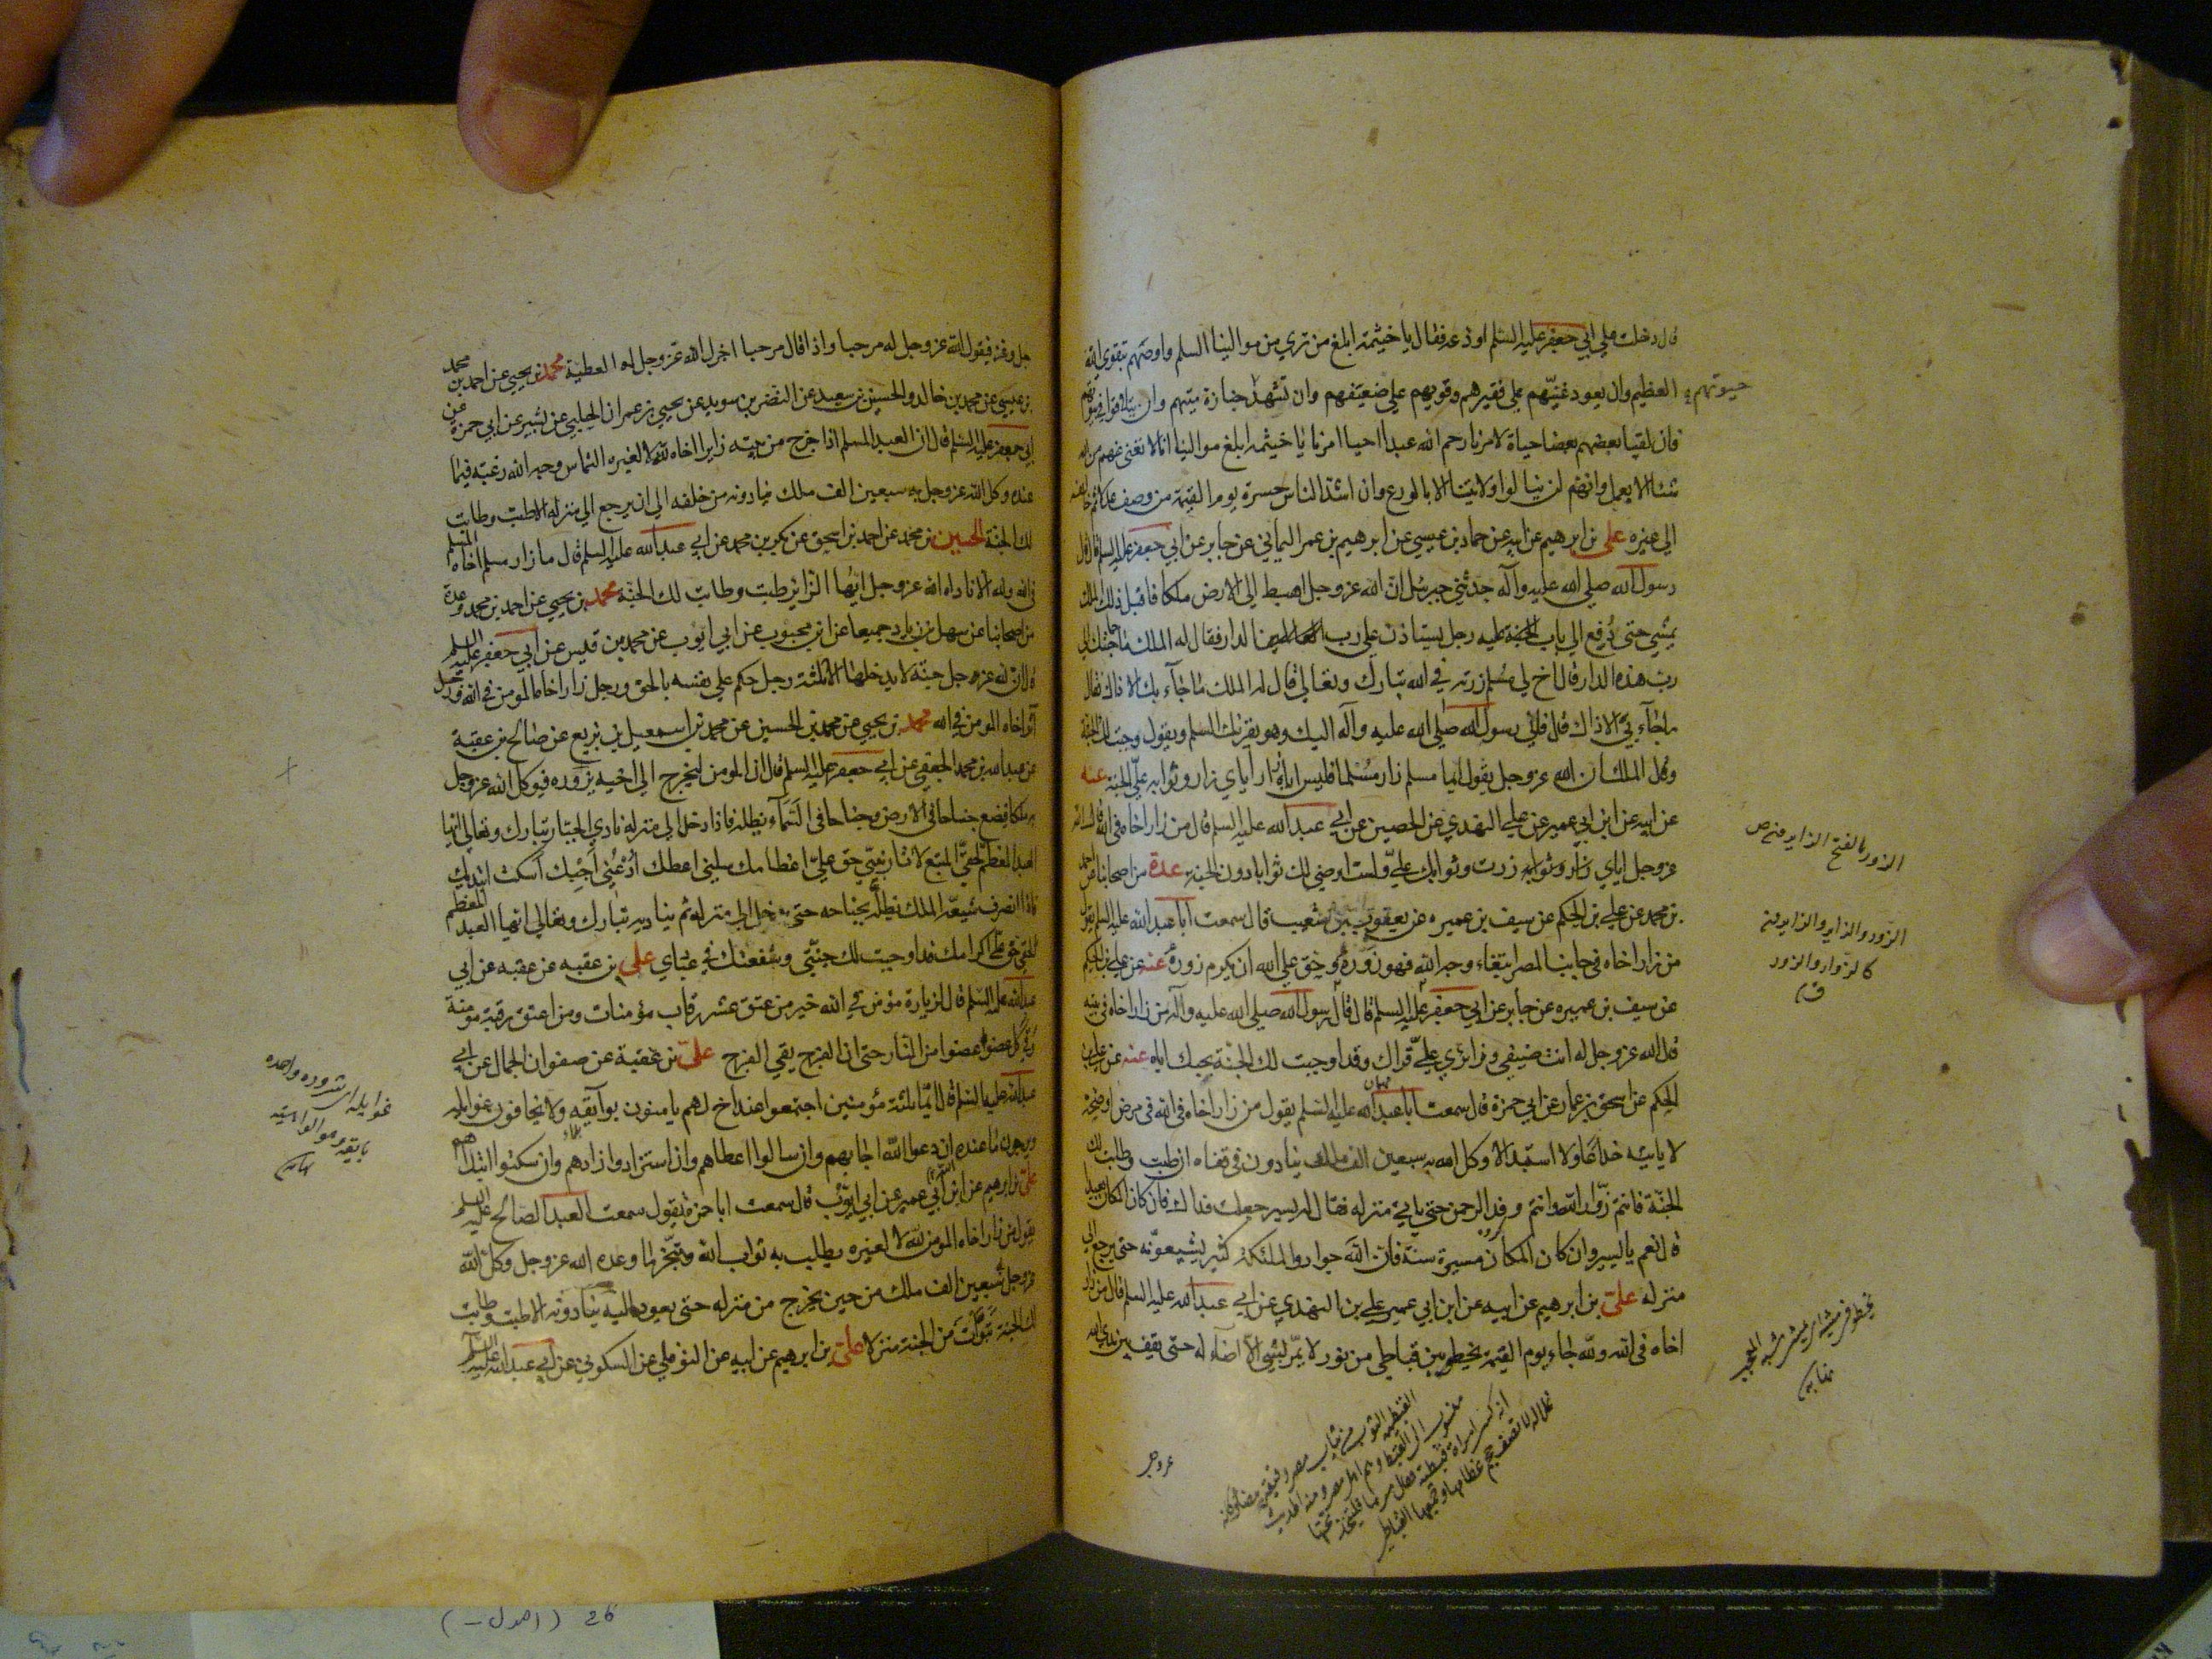 قال دخلت علي ابي جعفر عليه السلم اودعه فقال يا خيثمة ابلغ من تري من موالينا السلم واوصهم بتقوي الله
العظيم وان يعود غنيهم علي فقيرهم وقويهم علي ضعيفهم وان تشهد جنازة ميتهم وان يتلاقوا في بيوتهم
حيوتهم
فان لقيا بعضهم بعضا حياة لامرنا رحم الله عبدا احيا امرنا يا خيثمه ابلغ موالينا انا لا نغني عنهم من الله
شئا الا بعمل وانهم لن ينالوا ولايتنا الا بالورع وان اشد الناس حسرة يوم القيمة من وصف عدلا ثم خالفه
الي غيره علي بن ابرهيم عن ابيه عن حماد بن عيسي عن ابرهيم بن عمر اليماني عن جابر عن ابي جعفر عليه السلم قال قال
رسول الله صلي الله عليه وآله حدثني جبرئيل ان الله عز وجل اهبط الي الارض ملكا فاقبل ذلك الملك
يمشي حتي دفع الي باب عليه رجل يستاذن علي رب الدار فقال له الملك ما حاجتك الي
رب هذه الدار قال اخ لي مسلم زرته في الله تبارك وتعالي قال له الملك ما جآء بك الا ذاك فقال
ما جآء بي الا ذاك قال فاني رسول الله صلي الله عليه وآله اليك وهو يقرئك السلم ويقول وجبت لك الجنة
وقال الملك ان الله عز وجل يقول ايما مسلم زار مسلما فليس اياه زار اياي زار وثوابه علي الجنة عنه
عن ابيه عن ابن ابي عمير عن علي النهدي عن الحصين عن ابي عبد الله عليه السلم قال من زار اخاه في الله قال الله
عز وجل اياي زرت وثوابك علي ولست ارضي لك ثوابا دون الجنه عدة من اصحابنا عن احمد
بن محمد عن علي بن الحكم عن سيف بن عميره عن يعقوب بن شعيب قال سمعت ابا عبد الله عليه السلم يقول
من زار اخاه في جانب المصر ابتغاء وجه الله فهو زوره وحق علي الله ان يكرم زوره عنه عن علي بن الحكم
عن سيف بن عميره عن جابر عن ابي جعفر عليه السلم قال قال رسول الله صلي الله عليه وآله من زار اخاه في بيته
قال الله عز وجل له انت ضيفي وزائري علي قراك وقد اوجبت لك الجنة بحبك اياه عنه عن علي بن
الحكم عن اسحق بن عمار عن ابي حمزة قال سمعت ابا عبد الله عليه السلم يقول من زار اخاه في الله في مرض او صحة
لا يأتيه خداعا ولا استبدالا وكل الله به سبعين الف ملك ينادون في قفاه ان طبت وطابت لك
الجنة فانتم زوار الله وانتم وفد الرحمن حتي يأتي منزله فقال له يسير جعلت فداك فان كان المكان بعيدا
قال نعم يا يسير وان كان المكان مسيرة سنة فان الله جواد والملئكة كثير يشيعونه حتي يرجع الي
منزله علي بن ابرهيم عن ابيه عن ابن ابي عمير علي بن النهدي عن ابي عبد الله عليه السلم قال من زار
اخاه في الله ولله جاء يوم القيمة يخطو بين قباطي من نور لا يمر بشي الا اضاء له حتي يقف بين يدي الله
عز وجل
الزور بالفتح الزاير
الزور والزاير والزايرين
كالزوار والزور
ق
القبطية الثوب من ثياب مصر رقيقة بيضاء
منسوب الي القبط وهم اهل مصر ومنه الحديث
جل وعز فيقول الله عز وجل له مرحبا واذا قال مرحبا اجزل الله عز وجل له العطية محمد بن يحيي عن احمد بن محمد
بن عيسي عن محمد بن خالد والحسين بن سعيد عن النضر بن سويد عن يحيي بن عمران الحلبي عن بشير عن ابي حمزة عن
ابي جعفر عليه السلم قال ان العبد المسلم اذا خرج من بيته زايرا اخاه لله لا لغيره التماس وجه الله رغبة فيما
عنده وكل الله عز وجل به سبعين الف ملك ينادونه من خلفه الي ان يرجع الي منزله الا طبت وطابت
لك الجنة الحسين بن محمد عن احمد بن اسحق عن بكر بن محمد عن ابي عبد الله عليه السلم قال ما زار مسلم اخاه المسلم
في الله ولله الا ناداه الله عز وجل ايها الزائر طبت وطابت لك الجنة محمد بن يحيي عن احمد بن محمد وعدة
من اصحابنا عن سهل بن زياد جميعا عن ابن محبوب عن ابي ايوب عن محمد بن قيس عن ابي جعفر عليه السلم
قال ان لله عز وجل جنة لا يدخلها الا ثلثة رجل حكم علي نفسه بالحق ورجل زار اخاه المومن في الله ورجل
آثر اخاه المومن في الله محمد بن يحيي عن محمد بن الحسين عن محمد بن اسمعيل بن بزيع عن صالح بن عقبة
عن عبد الله بن محمد الجعفي عن ابي جعفر عليه السلم قال ان المومن ليخرج الي اخيه يزوره فيوكل الله عز وجل
به ملكا فيضع جناحا في الارض وجناحا في السماء يظله فاذا دخل الي منزله نادي الجبار تبارك وتعالي ايها
العبد المعظم لحقي المتبع لاثار نبيي حق علي اعظامك سلني اعطك ادعني اجبك اسكت ابتديك
فاذا انصرف شيعه الملك يظله بجناحه حتي يدخل الي منزله ثم يناديه تبارك وتعالي ايها العبد المعظم
لحقي حق علي اكرامك قد اوجبت لك جنتي وشفعتك في عبادي علي بن عقبه عن عقبه عن ابي
عبد الله عليه السلم قال لزيارة مؤمن في الله خير من عتق عشر رقاب مؤمنات ومن اعتق رقبة مومنة
وقي كل عضو عضوا من النار حتي ان الفرج يقي الفرج علي بن عقبة عن صفوان الجمال عن ابي
عبد الله عليه السلم قال ايما ثلثة مؤمنين اجتمعوا عند اخ لهم يامنون بوآيقه ولا يخافون غوايله
ويرجون ما عنده ان دعوا الله اجابهم وان سالوا اعطاهم وان استزادوا زادهم وان سكتوا ابتداهم
علي بن ابرهيم عن ابيه عن ابن ابي عمير عن ابي ايوب قال سمعت ابا حمزة يقول سمعت العبد الصالح عليه السلم
يقول من زار اخاه المومن لله لا لغيره يطلب به ثواب الله وتنجز ما وعده الله عز وجل وكل الله
عز وجل سبعين الف ملك من حين يخرج من منزله حتي يعود اليه ينادونه الا طبت وطابت
لك الجنة تبوأت من الجنة منزلا علي بن ابرهيم عن ابيه عن النوفلي عن السكوني عن ابي عبد الله عليه السلم
26 (اصول -)